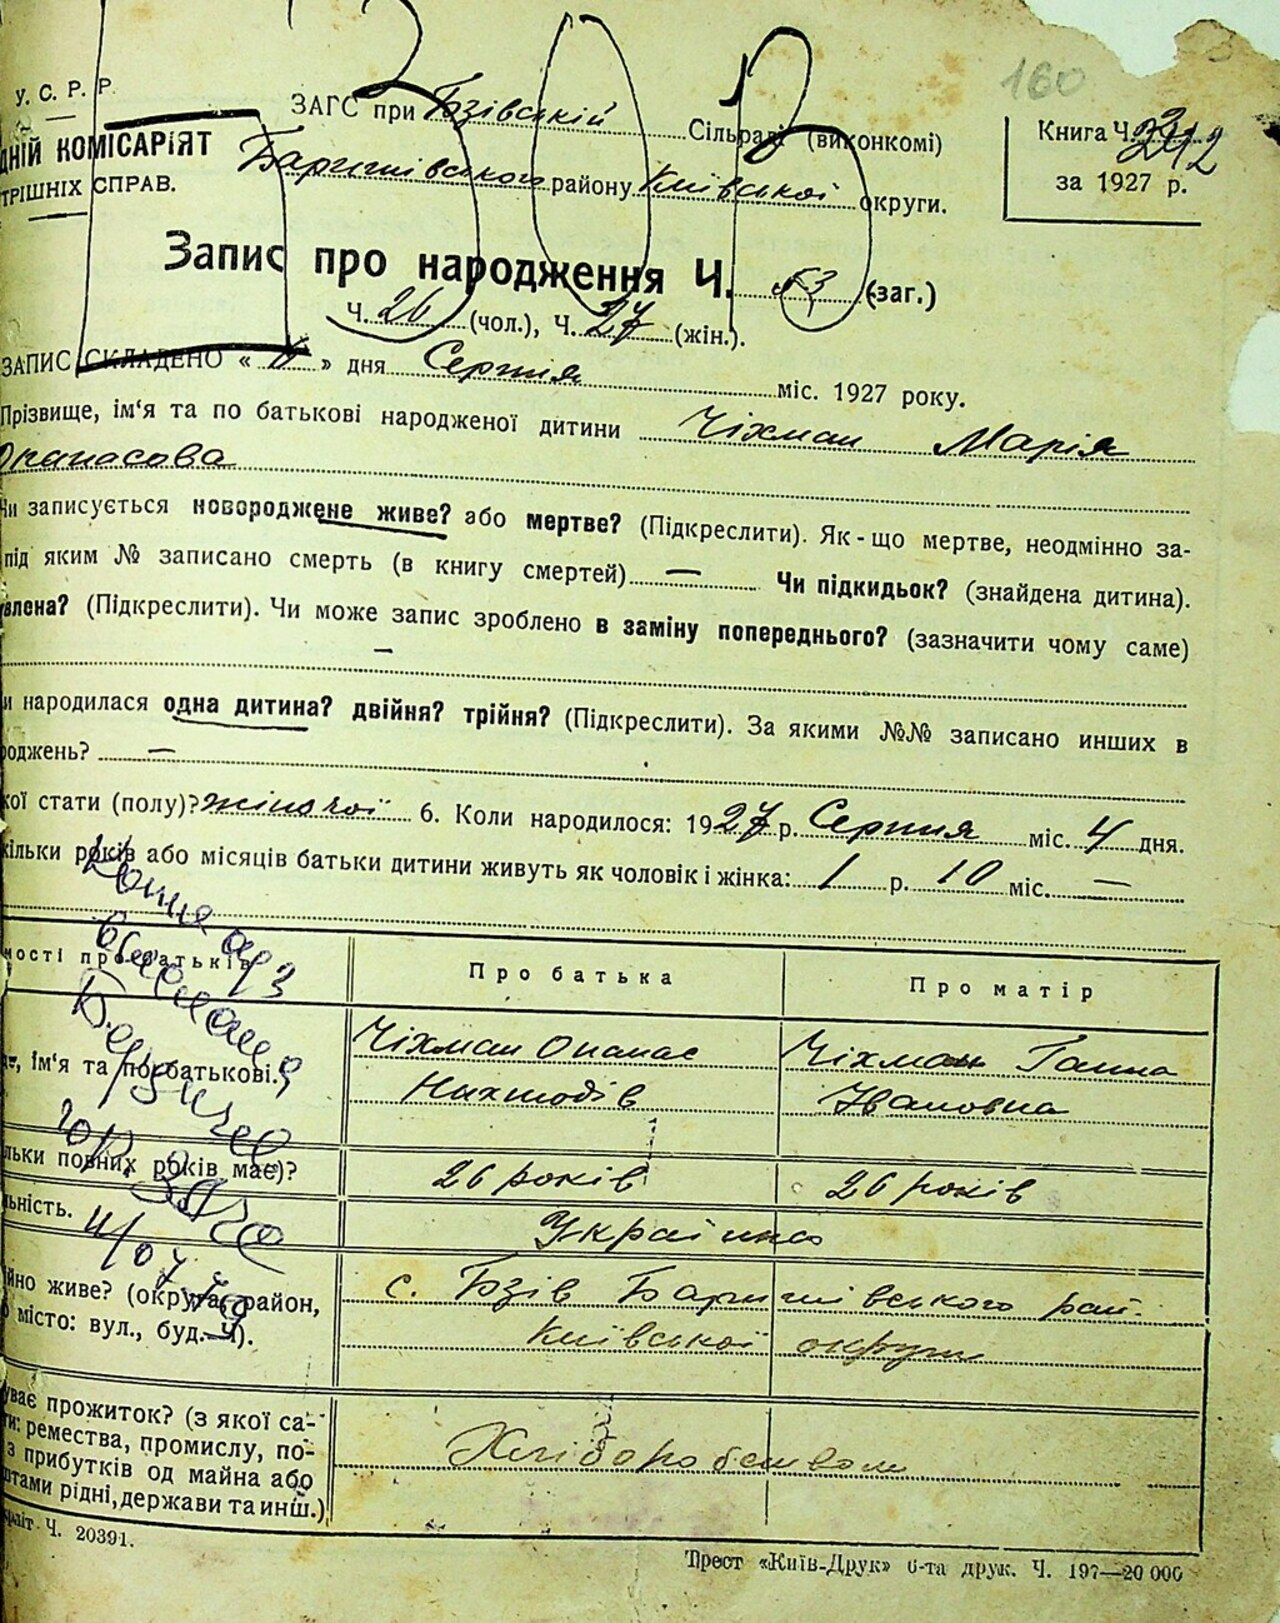 160
У. С. Р. Р.
ДНІЙ КОМІСАРІЯТ
ТРІШНІХ СПРАВ.
ЗАГС при Бзівській Сільраді (виконкомі)
Баришівського району Київської округи.
Книга Ч.
за 1927 р.
Запис про народження Ч. 53 (заг.)
Ч. 26 (чол.), Ч. 27 (жін.).
ЗАПИС СКЛАДЕНО « » дня Серпня міс. 1927 року.
Прізвище, ім'я та по батькові народженої дитини Чіхман Марія
Опанасова
Чи записується новороджене живе? або мертве? (Підкреслити). Як-що мертве, неодмінно за-
під яким № записано смерть (в книгу смертей) — Чи підкидьок? (знайдена дитина).
влена? (Підкреслити). Чи може запис зроблено в заміну попереднього? (зазначити чому саме)
—
и народилася одна дитина? двійня? трійня? (Підкреслити). За якими №№ записано инших в
роджень? —
кої стати (полу)? жіночої 6. Коли народилося: 1927 р. Серпня міс. 4 дня.
кільки років або місяців батьки дитини живуть як чоловік і жінка: 1 р. 10 міс. —
мості про батьків
Про батька
Про матір
ім'я та по батькові.
Чіхман Опанас
Чіхман Ганна
Івановна
льки повних років має)?
26 років
26 років
льність.
Українці
ійно живе? (округа, район,
місто: вул., буд. Ч).
с. Бзів Баришівського рай.
Київської округи
уває прожиток? (з якої са-
ти: ремества, промислу, по-
з прибутків од майна або
штами рідні, держави та инш.)
Хліборобством
Ч. 20391.
Трест «Київ-Друк» 6-та друк. Ч. 197—20 000